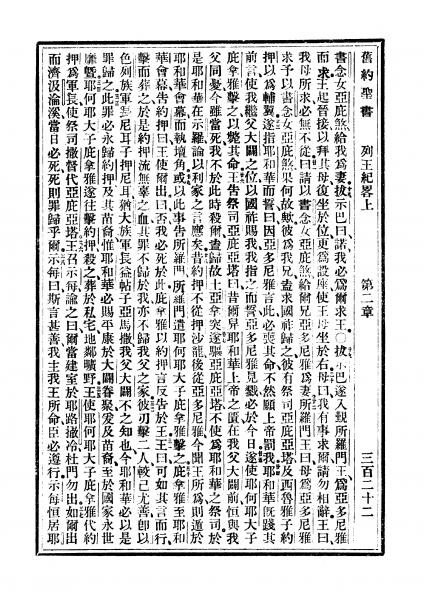 舊約聖書 列王紀畧上 第二章 三百二十二
書念女亞庇煞給我爲妻拔示巴曰諾我必爲爾求王〇拔示巴遂入覲所羅門王爲亞多尼雅
而求王起晉接以拜其母復坐於位更爲設座使王母坐於右母曰我有事求爾請勿相辭王曰
我母所求必無不從曰請以書念女亞庇煞給爾兄亞多尼雅爲妻所羅門王曰母爲亞多尼雅
求予以書念女亞庇煞果何故歟彼爲我兄盍求國祚歸之彼有祭司亞庇亞塔及西魯雅子約
押以爲輔翼遂指耶和華而誓曰因亞多尼雅言此必喪其命不然願上帝罰我耶和華旣踐其
前言使我繼父大闢之位以國祚賜我我指之而誓亞多尼雅見戮必於今日遂使耶何耶大子
庇拿雅擊之以斃其命王告祭司亞庇亞塔曰昔爾舁耶和華上帝之匱在我父大闢前恒與我
父同憂今雖當死我不於此時殺爾盍歸故土亞拿突遂驅亞庇亞塔不使爲耶和華之祭司於
是耶和華在示羅論以利家之言應矣昔約押不從押沙龍後從亞多尼雅今聞王所爲則遁於
耶和華會幕而執壇角或以此事告所羅門所羅門遣耶何耶大子庇拿雅擊之庇拿雅至耶和
華會幕告約押曰王使爾出曰否我必死於此庇拿雅以約押言反告於王王曰可如其言而行
擊而葬之於是約押流無辜之血其罪不歸於我亦不歸我父之家彼刃擊二人較己尤善卽以
色列族軍長尼耳子押尼耳猶大族軍長益帖子亞馬撒我父大闢不之知也今耶和華必以是
罪歸之此罪必永歸約押及其苗裔惟耶和華必賜平康於大闢眷聚爰及苗裔至於國家永世
靡曁耶何耶大子庇拿雅遂往擊約押殺之葬於私宅地鄰曠野王使耶何耶大子庇拿雅代約
押爲軍長使祭司撒督代亞庇亞塔王召示每諭之曰爾當建室於耶路撒冷杜門勿出如爾出
而濟汲淪溪當日必死死則罪歸乎爾示每曰斯言甚善我主我王所命臣必遵行示每恒居耶